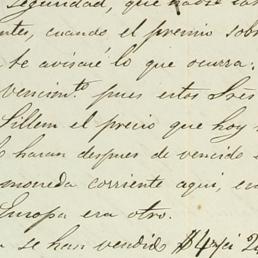 Seguridad, que
ntes, cuando el premio sob
te avisaré lo que ocurra.
vencim.to pues estos Sres
Sillem el precio que hoy
haran despues de vencido
moneda corriente aqui, en
Europa era otro.
se han vendido